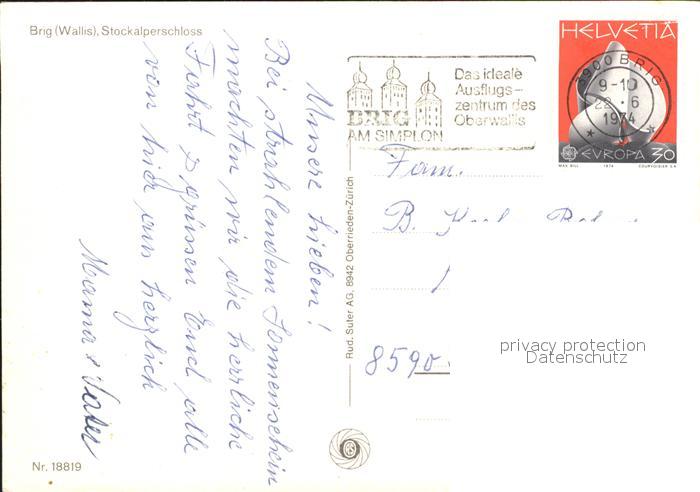 Brig (Wallis), Stockalperschloss
Unsere Lieben!
Bei strahlendem Sonnenschein
machten wir die herrliche
Fahrt & grüssen Euch alle
von hier aus herzlich
Mama & Vater
Nr. 18819
Rud. Suter AG, 8942 Oberrieden-Zürich
BRIG
AM SIMPLON
Das ideale
Ausflugs-
zentrum des
Oberwallis
3900 BRIG
9-10
22.6
1974
HELVETIA
EVROPA 30
MAX BILL 1974 COURVOISIER S.A.
Fam.
B.
8590
privacy protection
Datenschutz